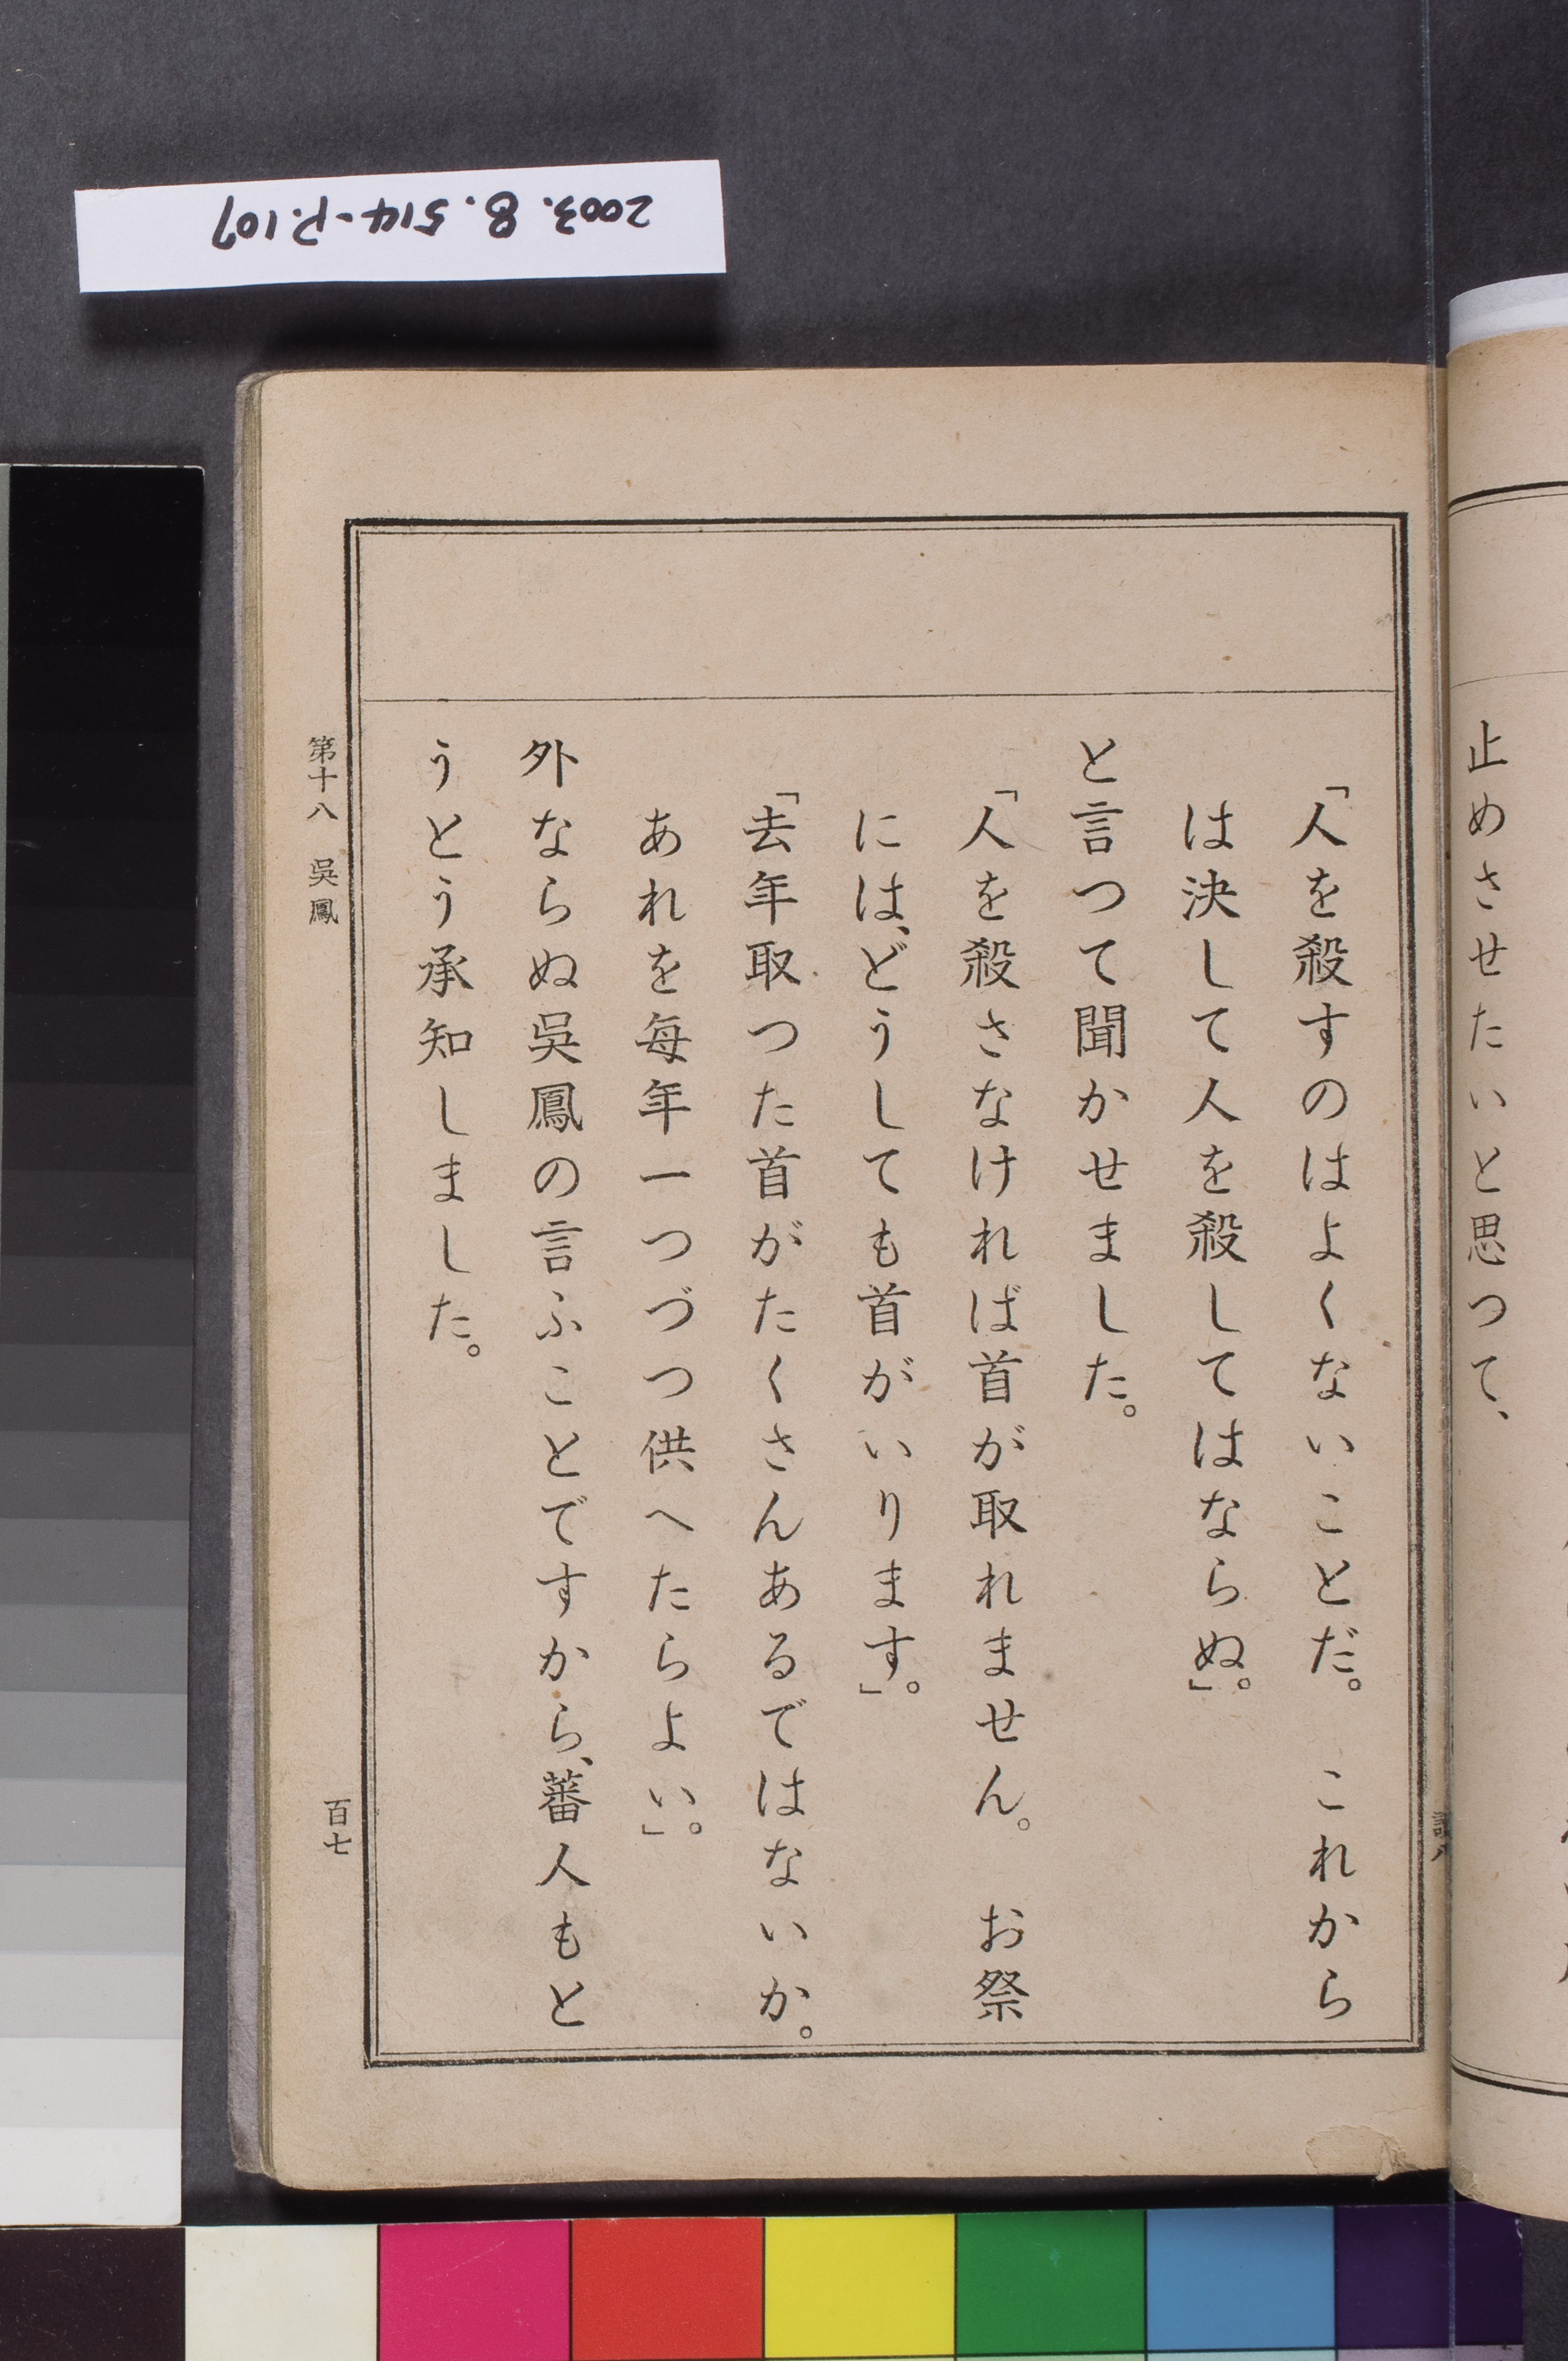 2003. 8. 514-P.107
止めさせたいと思つて、
「人を殺すのはよくないことだ。 これから
は決して人を殺してはならぬ」。
と言つて聞かせました。
「人を殺さなければ首が取れません。 お祭
には、どうしても首がいります」。
「去年取つた首がたくさんあるではないか。
あれを每年一つづつ供へたらよい」。
外ならぬ吳鳳の言ふことですから、蕃人もと
うとう承知しました。
第十八 吳鳳
百七